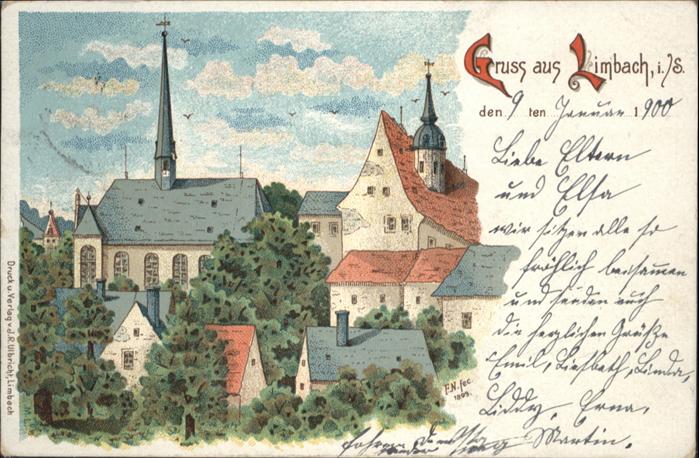 Gruss aus Limbach, i./S.
den 9 ten Januar 1900
Liebe Eltern
und Elsa
wir sitzen alle so
fröhlich beisammen
und senden euch
die herzlichen Grüße
Emil, Liesbeth, Linda,
Liddy, Erna,
Martin.
F.N. fec.
1899.
Druck u. Verlag v. J.R. Ulbricht, Limbach